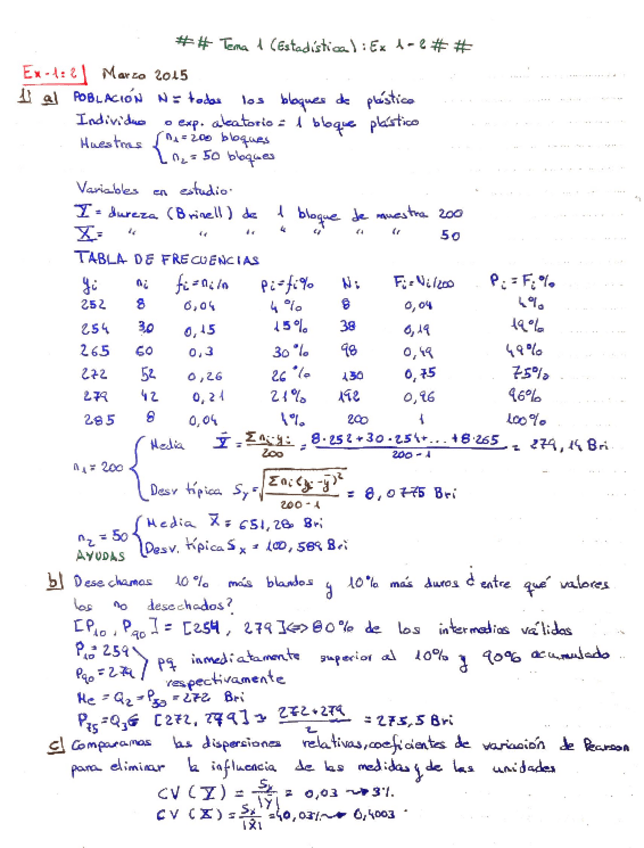 ## Tema 1 (Estadística): Ex 1-2 ##
Ex-1:2 Marzo 2015
1) a) POBLACIÓN N = todos los bloques de plástico
Individuo o exp. aleatorio = 1 bloque plástico
Muestras { n₁=200 bloques
n₂ = 50 bloques
Variables en estudio.
Y = dureza (Brinell) de 1 bloque de muestra 200
X = " " " " " " " 50
TABLA DE FRECUENCIAS
yi ni fi=ni/n pi=fi% Ni Fi=Ni/200 Pi=Fi%
252 8 0,04 4% 8 0,04 4%
254 30 0,15 15% 38 0,19 19%
265 60 0,3 30% 98 0,49 49%
272 52 0,26 26% 150 0,75 75%
279 42 0,21 21% 192 0,96 96%
285 8 0,04 4% 200 1 100%
n₁=200 { Media Y̅ = Σni·yi/200 = 8·252+30·254+...+8·265/200-1 = 279,14 Bri
Desv típica Sy = √(Σni(yi-y̅)²/200-1) = 8,0775 Bri
n₂ = 50 { Media X̅ = 651,280 Bri
Desv. típica Sx = 100,589 Bri
AYUDAS
b) Desechamos 10% más blandos y 10% más duros ¿entre qué valores
los no desechados?
[P₁₀, P₉₀] = [254, 279] <=> 80% de los intermedios válidos
P₁₀=254
P₉₀=279 } pq inmediatamente superior al 10% y 90% acumulado
respectivamente
Me = Q₂ = P₅₀ = 272 Bri
P₇₅=Q₃∈ [272, 279] → 272+279/2 = 275,5 Bri
c) Comparamos las dispersiones relativas, coeficientes de variación de Pearson
para eliminar la influencia de las medidas y de las unidades
CV (Y) = Sy/|Y̅| = 0,03 → 3%
CV (X) = Sx/|X̅| = 40,03% → 0,4003